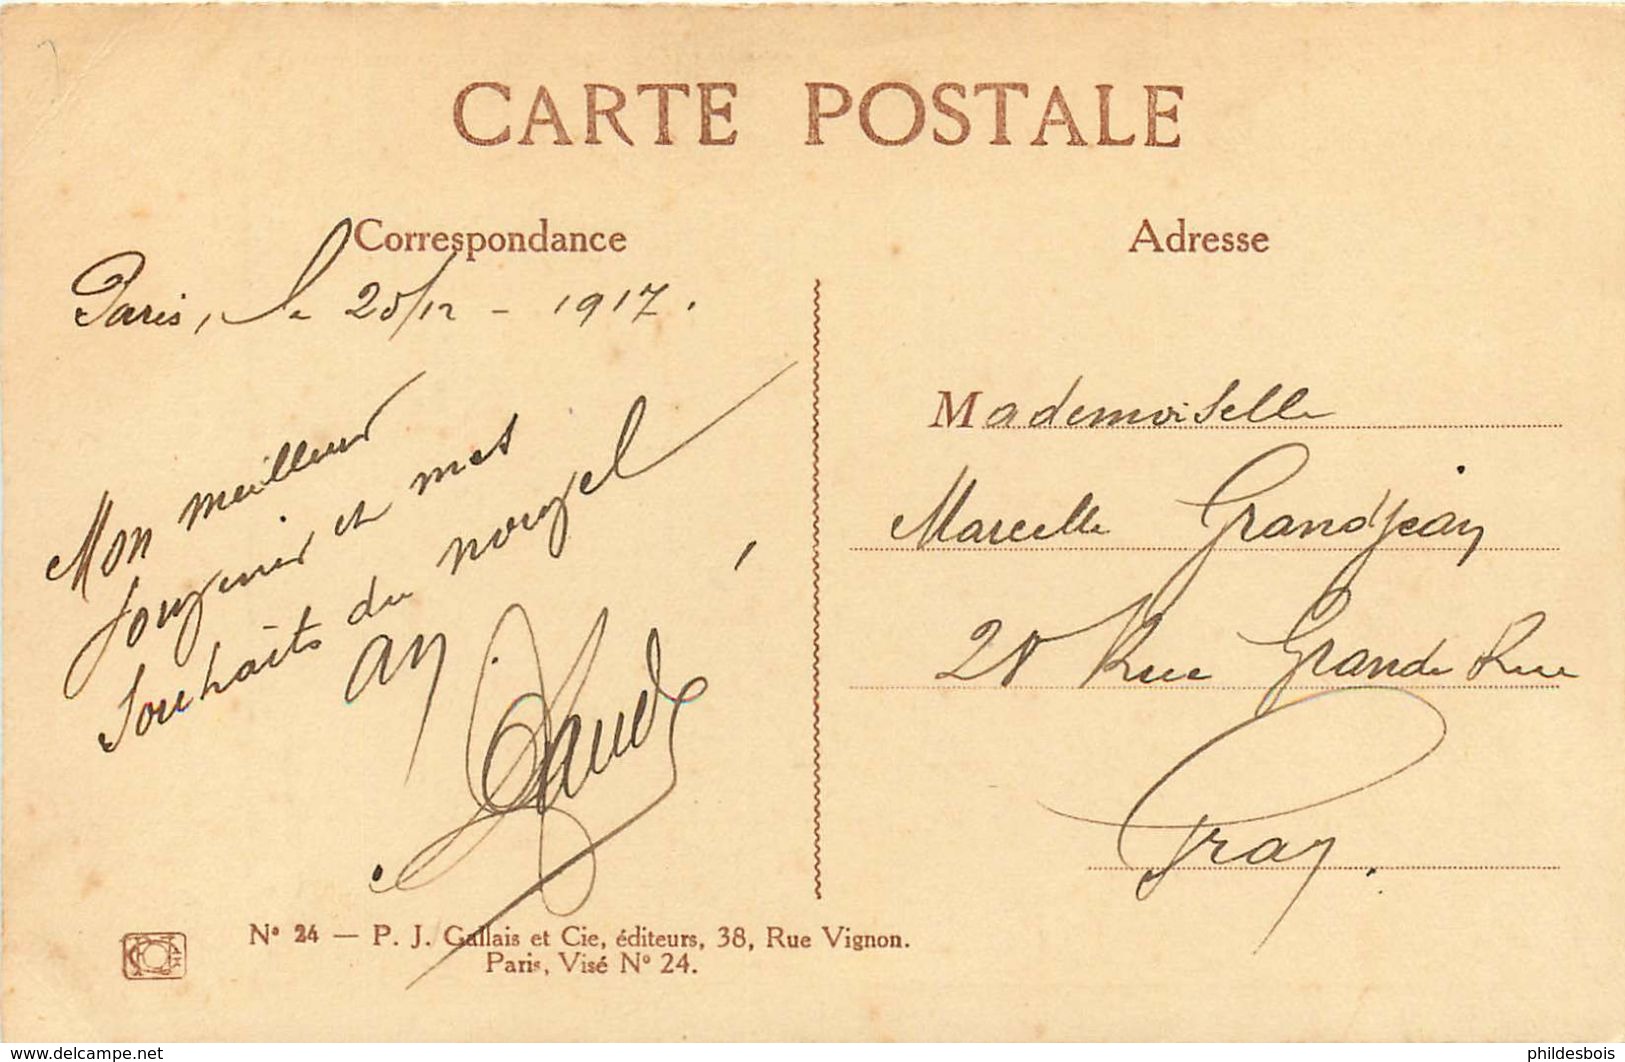 CARTE POSTALE
Correspondance
Adresse
Paris, le 25/12 - 1917.
Mon meilleur
souvenir et mes
souhaits du nouvel
an.
Mademoiselle
Marcelle Grandjean
28 Rue Grande Rue
Gray.
N° 24 — P. J. Gallais et Cie, éditeurs, 38, Rue Vignon.
Paris, Visé N° 24.
www.delcampe.net
phildesbois